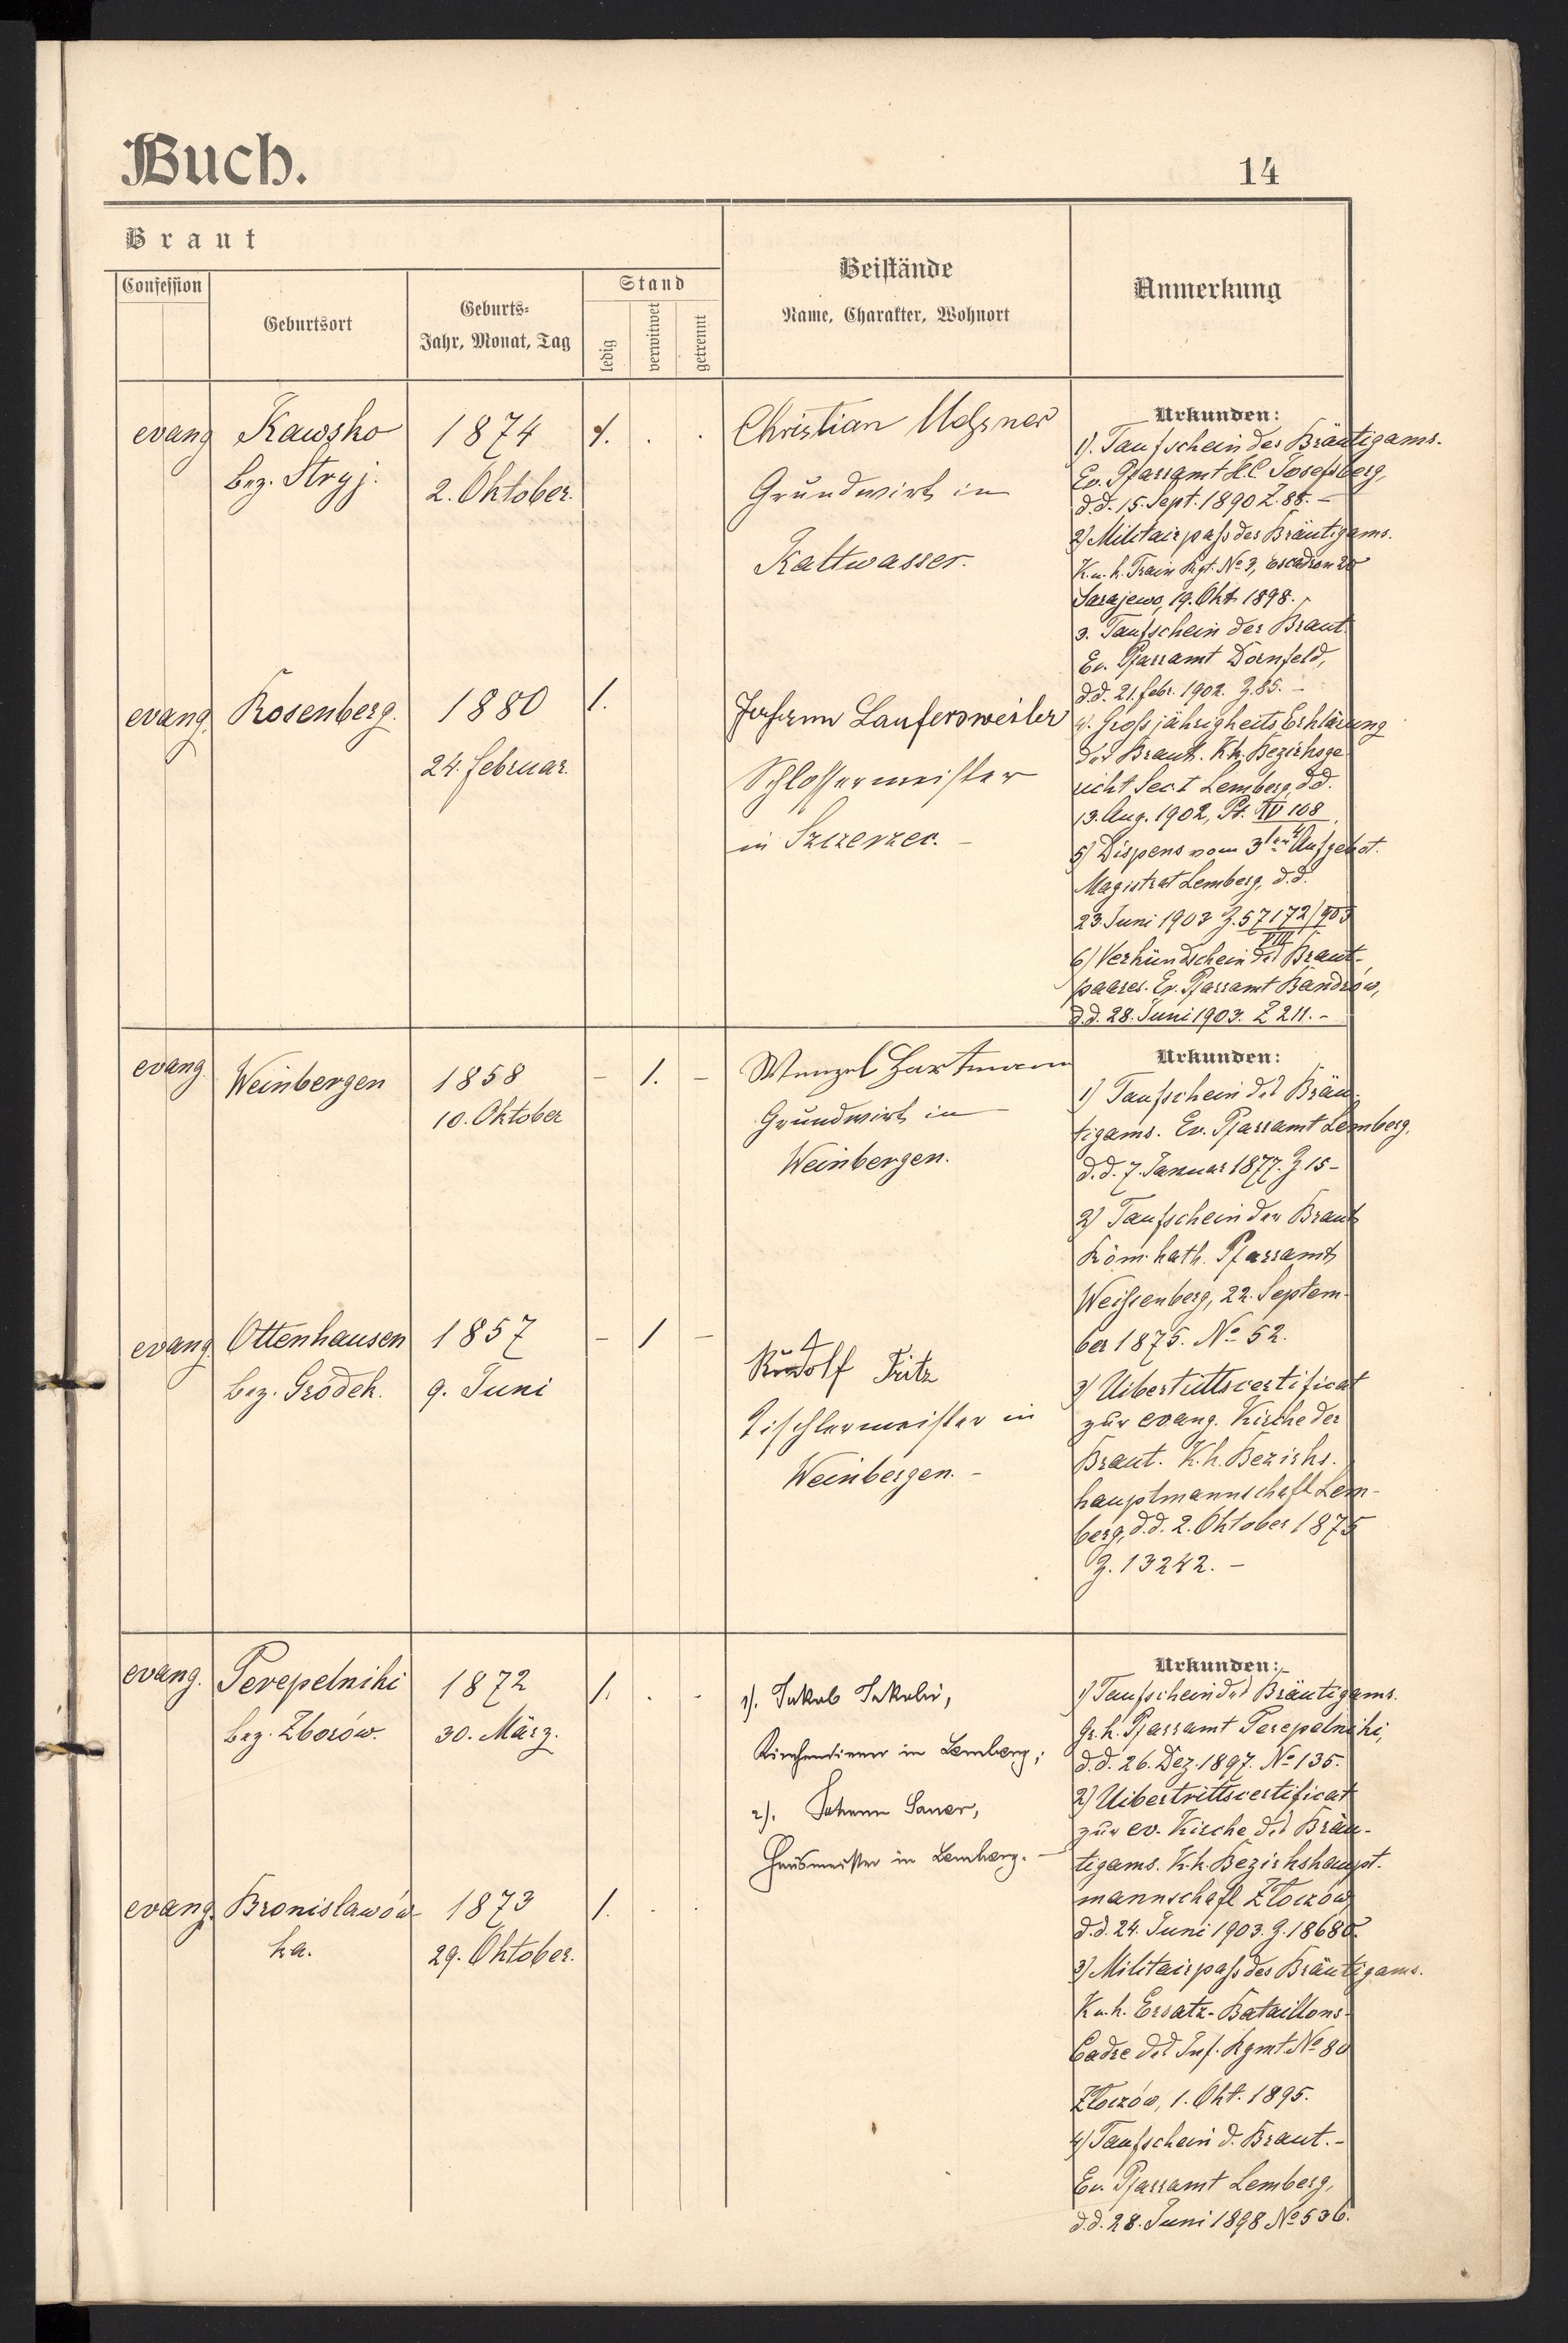 Buch.
14
Braut
Confession
Geburtsort
Geburts-
Jahr, Monat, Tag
Stand
ledig
verwitwet
getrennt
Beistände
Name, Charakter, Wohnort
Anmerkung
evang Kawsko 1874 1. . .
bez. Stryj. 2. Oktober.
Christian
Grundwirt in
Kaltwasser.
Urkunden:
1). Taufschein des Bräutigams.
Ev. Pfarramt H.C. Josefsberg,
d.d. 15. Sept. 1890 Z. 88. –
2) Militairpaß des Bräutigams.
K.u.k. Train Rgt. № 3, Escadron 20
Sarajewo, 19. Okt 1898.
3. Taufschein der Braut.
Ev. Pfarramt Dornfeld,
d.d. 21. febr. 1902. Z. 85. –
4. Großjährigkeits Erklärung
der Braut. K.k. Bezirksge
richt Sec. I Lemberg, d.d.
13. Aug. 1902, Pt. IV 108
5) Dispens vom 3ten Aufgebot.
Magistrat Lemberg, d.d.
23. Juni 1903 Z. 57172/903
VIII
6) Verkündschein des Braut-
paares. Ev. Pfarramt Bandrów,
d.d. 28. Juni 1903. Z 211. –
evang. Rosenberg. 1880 1.
24. februar.
Johann Laufersweiler
Schlossermeister
in Szczerzec. –
evang. Weinbergen 1858 – 1. –
10. Oktober
Wenzel Hartmann
Grundwirt in
Weinbergen.
Urkunden:
1) Taufschein des Bräu-
tigams. Ev. Pfarramt Lemberg.
d.d. 7. Januar 1877. Z. 15 –
2) Taufschein der Braut
Röm. kath. Pfarramt
Weißenberg, 22. Septem-
ber 1875. № 52.
3) Uibertrittscertificat
zur evang. Kirche der
Braut. K.k. Bezirks.
hauptmannschaft Lem-
berg, d.d. 2. Oktober 1875
Z. 13242. –
evang. Ottenhausen 1857 – 1 –
bez. Gródek. 9. Juni
Rudolf Fritz
Tischlermeister in
Weinbergen. –
evang. Perepelniki 1872 1. . .
bez. Zborów. 30. März.
1). Jakob Jakobi,
Kirchendiener in Lemberg;
2). Johann Sauer,
Hausmeister in Lemberg. –
Urkunden:
1) Taufschein des Bräutigams.
Gr. k. Pfarramt Perepelniki,
d.d. 26. Dez. 1897. № 135.
2) Uibertrittscertificat
zur ev. Kirche des Bräu-
tigams. K.k. Bezirkshaupt.
mannschaft Złoczów
d.d. 24. Juni 1903. Z. 18680.
3) Militairpaß des Bräutigams.
K.u.k. Ersatz-Bataillons-
Cadre des Inf. Rgmt № 80
Złoczów, 1. Okt. 1895.
4) Taufschein d. Braut. –
Ev. Pfarramt Lemberg,
d.d. 28. Juni 1898 № 536.
evang. Bronislawów- 1873 1. . .
ka. 29. Oktober.